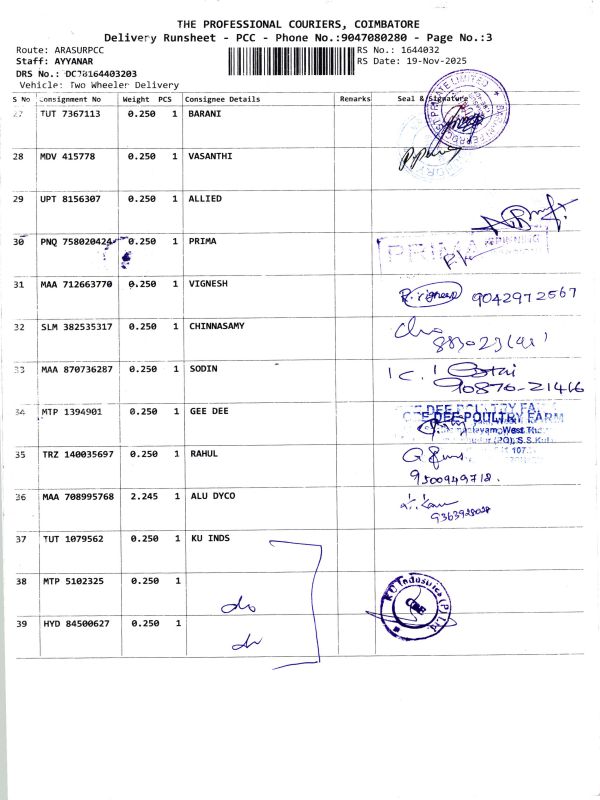 THE PROFESSIONAL COURIERS, COIMBATORE
Delivery Runsheet - PCC - Phone No.:9047080280 - Page No.:3
Route: ARASURPCC
RS No.: 1644032
Staff: AYYANAR
RS Date: 19-Nov-2025
DRS No.: DC78164403203
Vehicle: Two Wheeler Delivery
S No Consignment No Weight PCS Consignee Details Remarks Seal & Signature
27 TUT 7367113 0.250 1 BARANI
28 MDV 415778 0.250 1 VASANTHI
29 UPT 8156307 0.250 1 ALLIED
30 PNQ 758020424 0.250 1 PRIMA
PRIMA SPINNING
31 MAA 712663770 0.250 1 VIGNESH
R.vignesh 9042972567
32 SLM 382535317 0.250 1 CHINNASAMY
33 MAA 870736287 0.250 1 SODIN
90870-21466
34 MTP 1394901 0.250 1 GEE DEE
GEE DEE POULTRY FARM
35 TRZ 140035697 0.250 1 RAHUL
9500949718.
36 MAA 708995768 2.245 1 ALU DYCO
37 TUT 1079562 0.250 1 KU INDS
38 MTP 5102325 0.250 1
do
KU Industries (P) Ltd
CBE
39 HYD 84500627 0.250 1
do